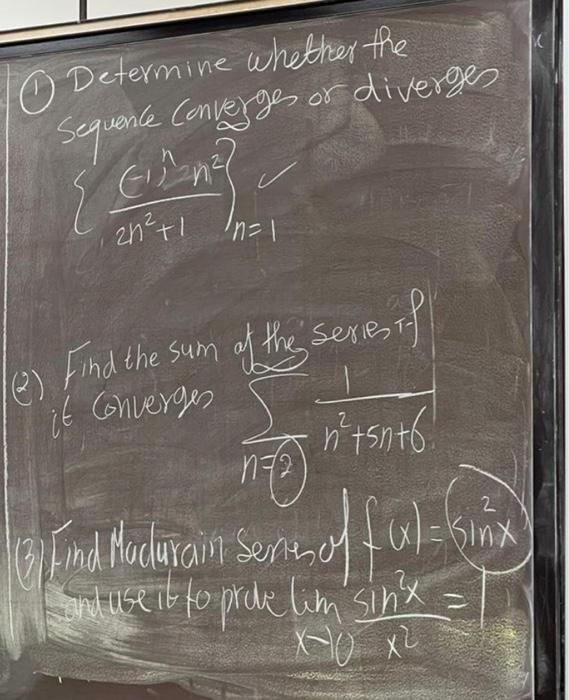 ① Determine whether the
Sequence Converges or diverges
{ (-1)ⁿ n² / 2n²+1 }^∞ n=1 ✓
(2) Find the sum of the series If
it Converges ∑^∞ n=2 1 / n²+5n+6
(3) Find Maclurain series of f(x) = sin²x
and use it to prove lim x→0 sin²x / x² = 1